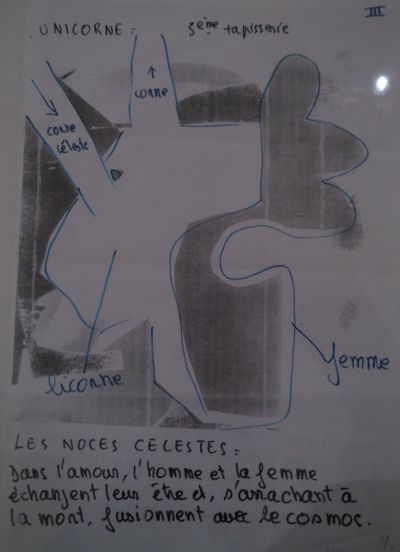 III
UNICORNE = 3ème tapisserie
↑
corne
corne
céleste
licorne
femme
LES NOCES CELESTES =
Dans l'amour, l'homme et la femme
échangent leur être et, s'arrachant à
la mort, fusionnent avec le cosmos.